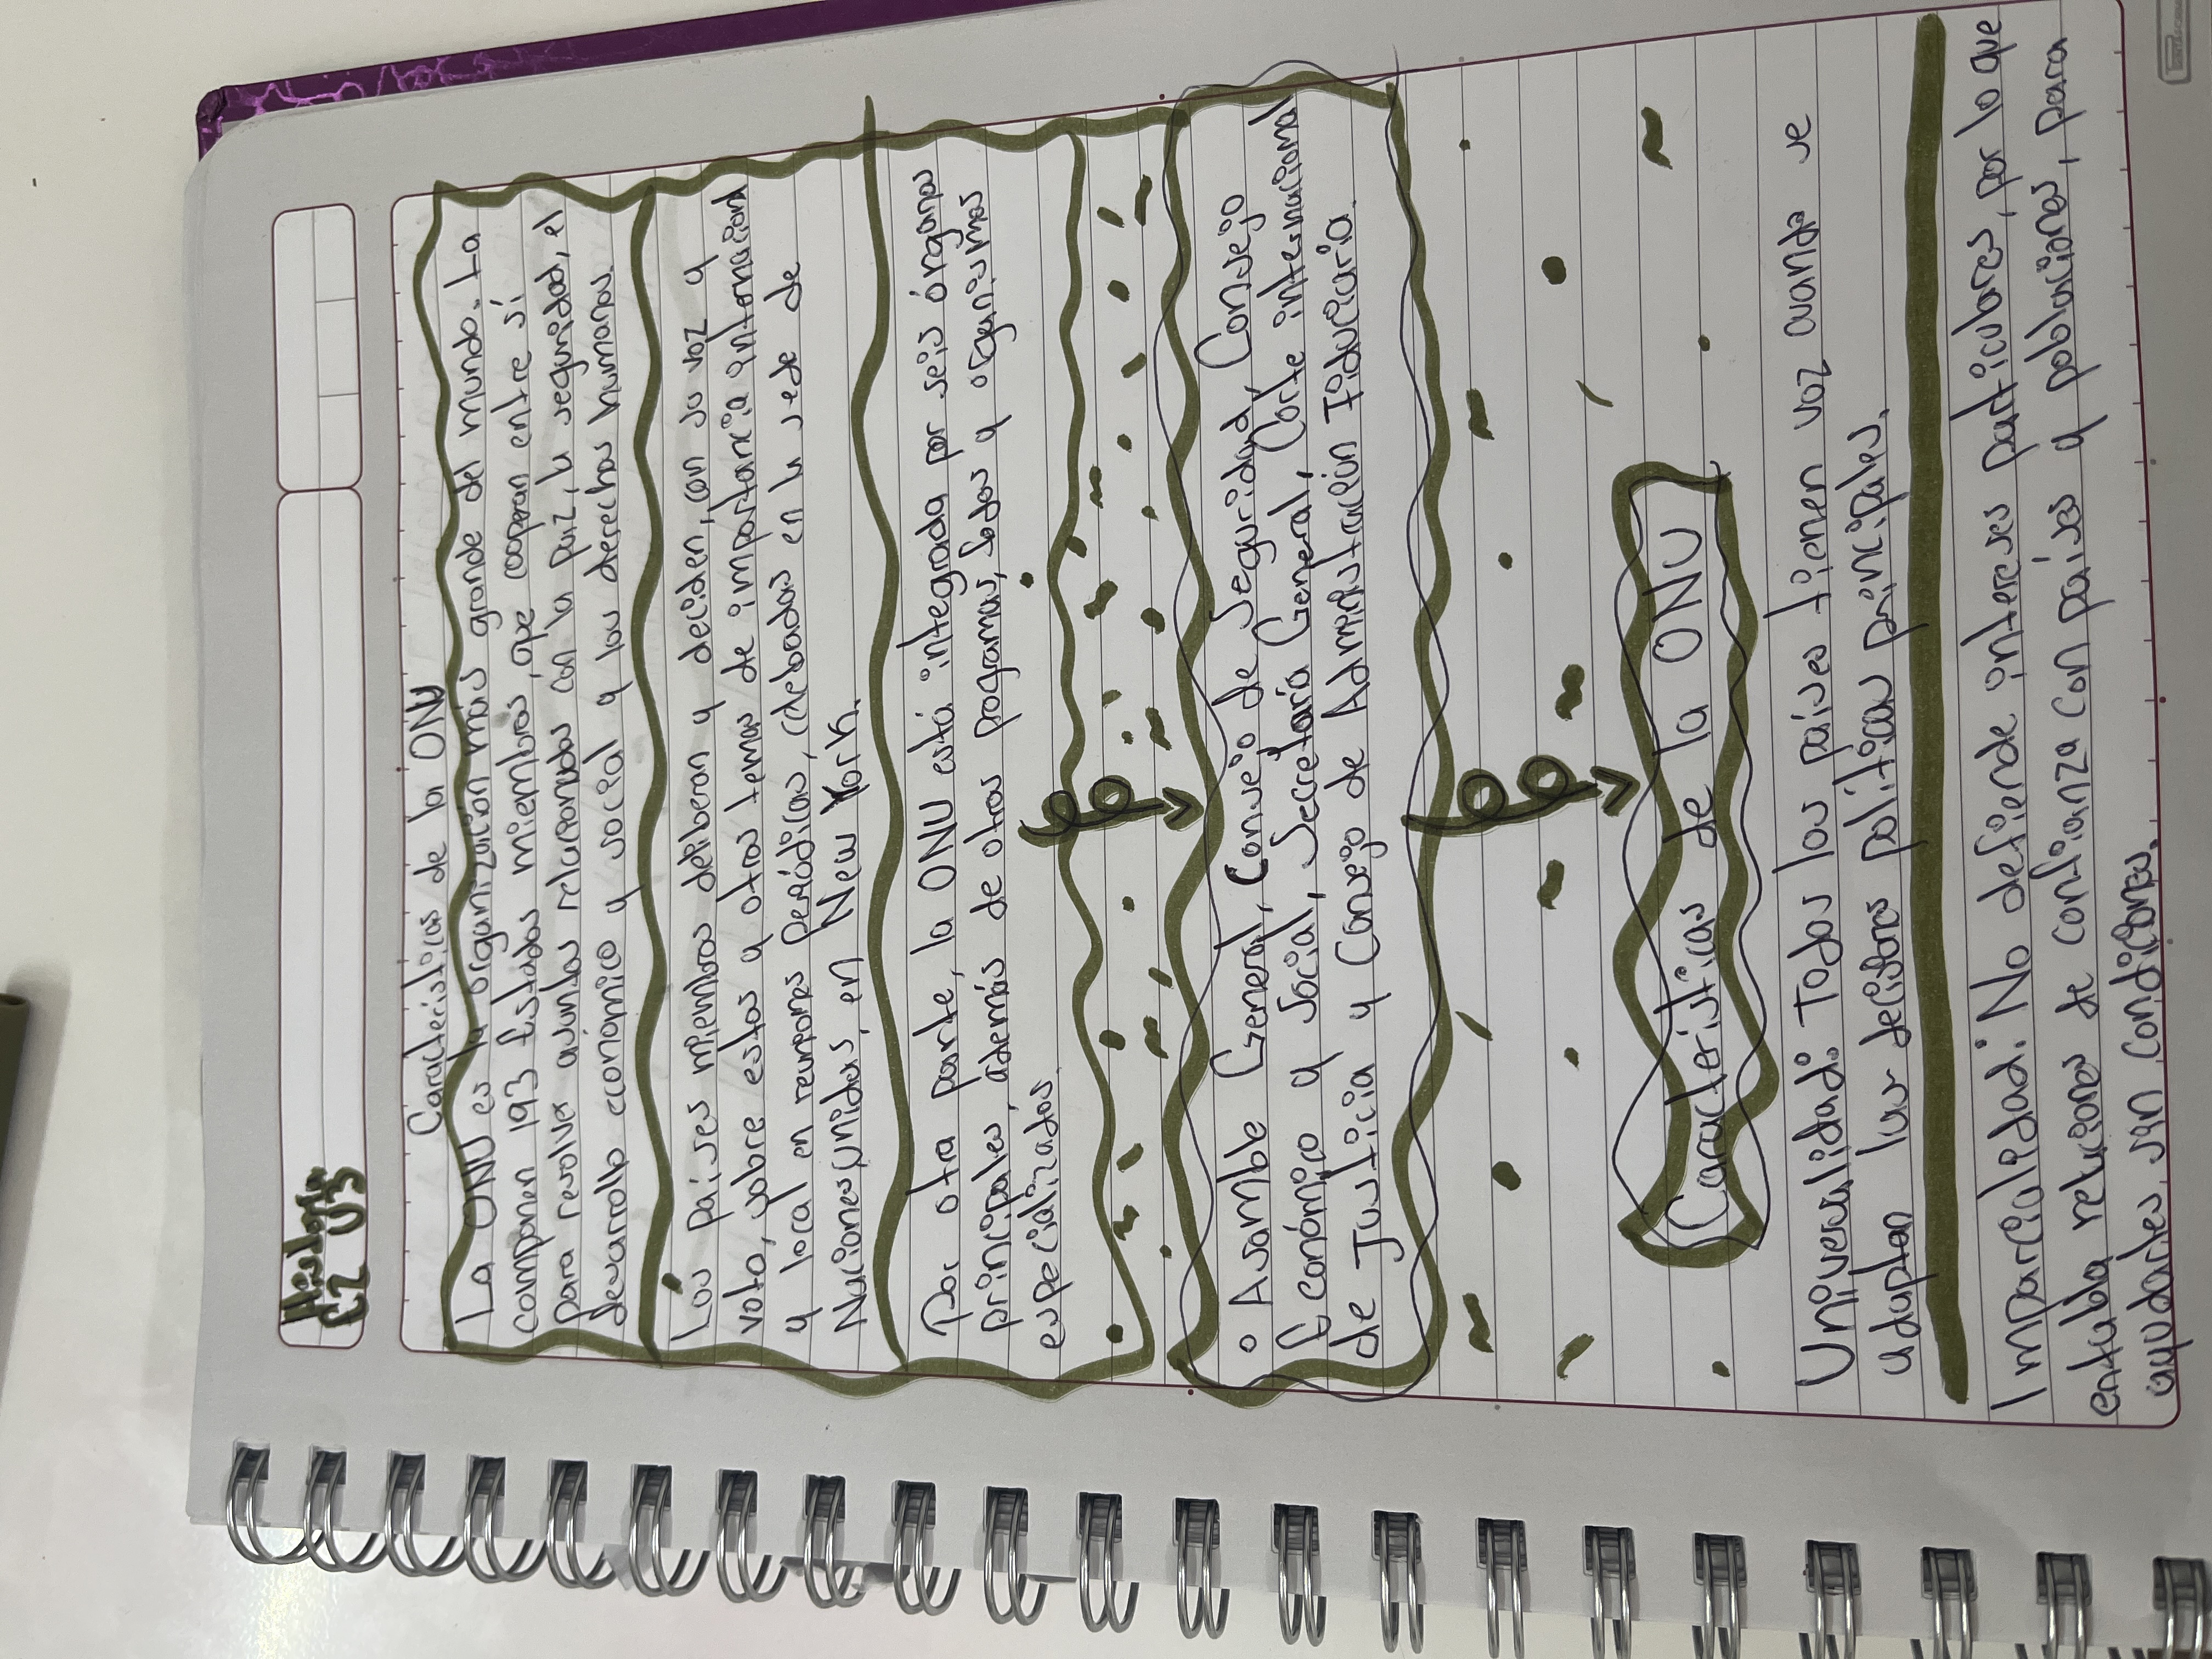 Historia
C2 U3
Características de la ONU
La ONU es la organización más grande del mundo. La
componen 193 Estados miembros, que cooperan entre sí
para resolver asuntos relacionados con la paz, la seguridad, el
desarrollo económico y social y los derechos humanos.
Los países miembros deliberan y deciden, con su voz y
voto, sobre estos y otros temas de importancia internacional
y local en reuniones periódicas, celebadas en la sede de
Naciones Unidas, en New York.
Por otra parte, la ONU está integrada por seis órganos
principales, además de otros programas, fodos y organismos
especializados.
o Asamble General, Consejo de Seguridad, Consejo
Económico y Social, Secretaría General, Corte internacional
de Justicia y Consejo de Administración Fiduciaria.
Características de la ONU
Universalidad: Todos los países tienen voz cuando se
adaptan las decisiones políticas principales.
Imparcialidad: No defiende intereses particulares, por lo que
entabla relaciones de confianza con países y poblaciones, para
ayudarles sin condiciones.